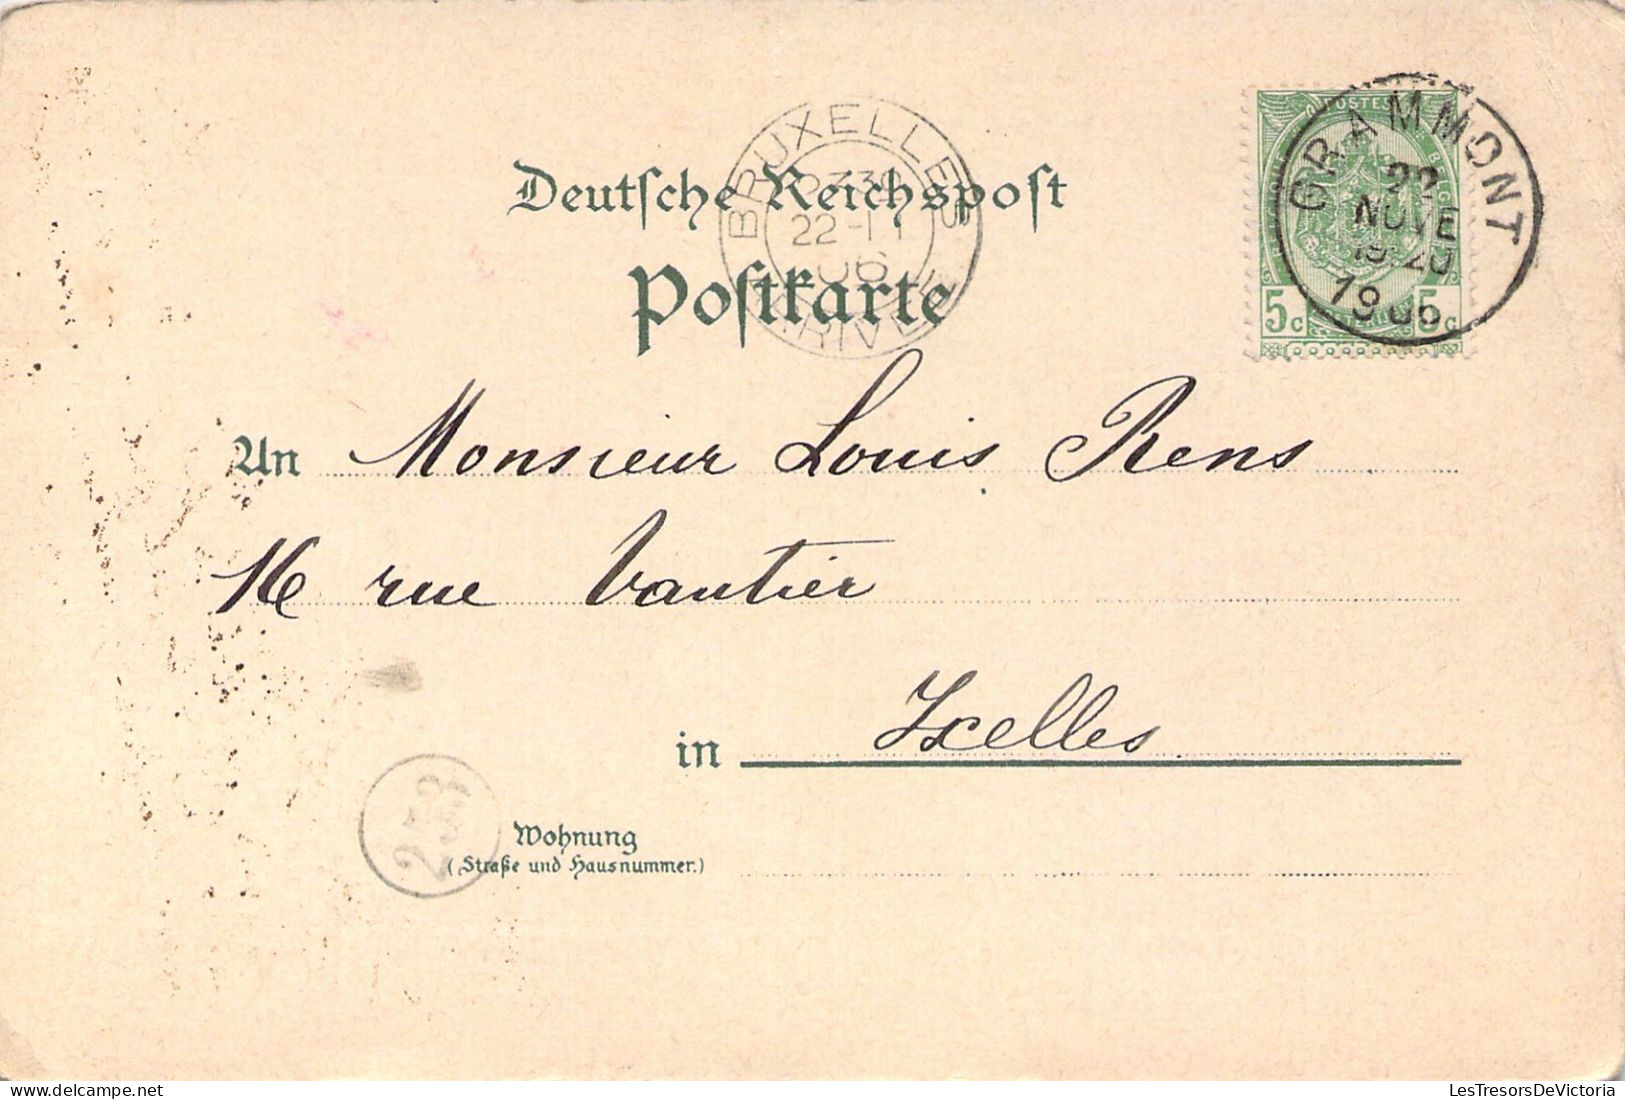 POSTES
GRAMMONT
22
NOVE
1906
5c 5c
BRUXELLES
22-11
06
ARRIVEE
Deutsche Reichspost
Postkarte
An Monsieur Louis Rens
16 rue Vautier
in Ixelles
Wohnung
(Straße und Hausnummer.)
LesTresorsDeVictoria